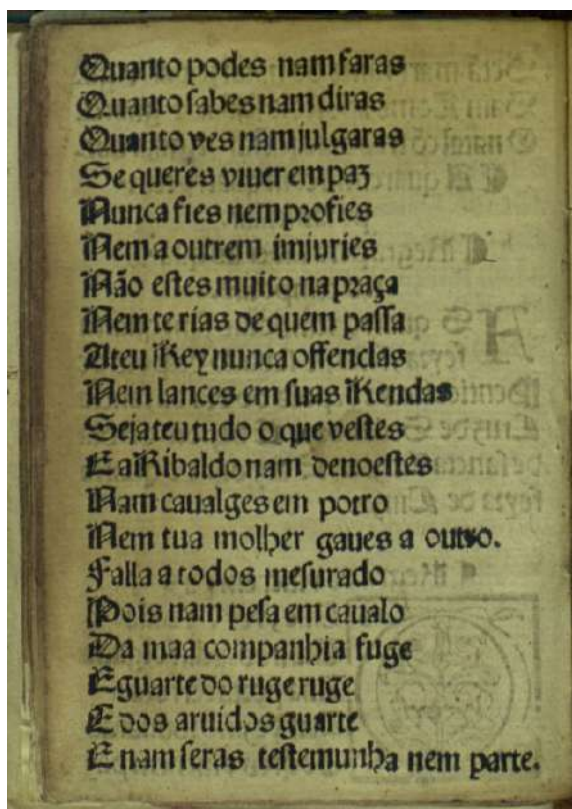 Quanto podes nam faras
Quanto sabes nam diras
Quanto ves nam julgaras
Se queres viuer em paz
Nunca fies nem profies
Nem a outrem imjuries
Não estes muito na praça
Nem te rias de quem passa
A teu Rey nunca offendas
Nem lances em suas Rendas
Seja teu tudo o que vestes
E a Ribaldo nam denoestes
Nam caualges em potro
Nem tua molher gaues a outro.
Falla a todos mesurado
Pois nam pesa em caualo
Da maa companhia fuge
E guarte do ruge ruge
E dos aruidos guarte
E nam seras testemunha nem parte.